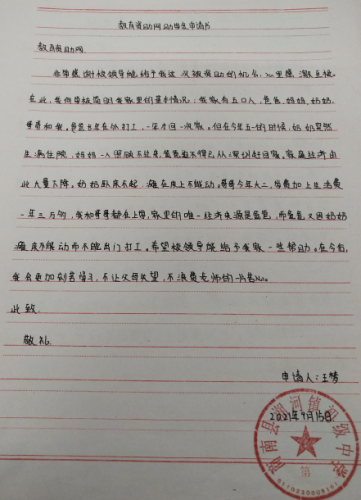 教育资助网助学生申请书
教育资助网:
非常感谢校领导能给予我这次被资助的机会,心里感激至极
在此,我向学校简阐我家里的基本情况:我家有五口人,爸爸妈妈,奶奶
哥哥和我。爸爸日常在外打工,一年才回一次家。但在今年五一的时候,奶奶突然
生病住院,妈妈一人照顾不过来,爸爸不得已从深圳赶回家,家庭经济由
此大量下降。奶奶卧床不起,瘫在床上不能动。哥哥今年大二,学费加上生活费
一年三万多,我和哥哥都在上学,家里的唯一经济来源是爸爸,而爸爸又因奶奶
瘫床不能动而不能出门打工。希望校领导能给予我家一些帮助。在今后,
我会更加刻苦学习,不让父母失望,不浪费老师的一片苦心。
此致
敬礼
申请人:王梦
2021年9月15日
县河镇初级中学